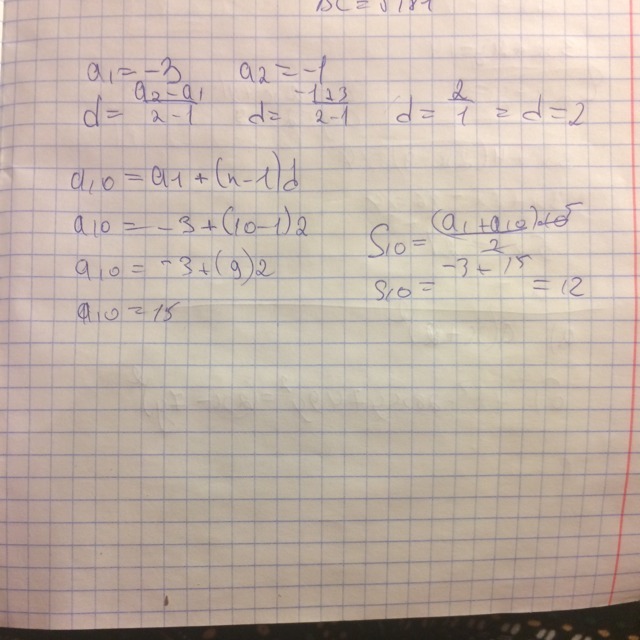 a₁ = -3    a₂ = -1
d = (a₂ - a₁)/(2 - 1)    d = (-1 + 3)/(2 - 1)    d = 2/1 = d = 2
a₁₀ = a₁ + (n - 1)d
a₁₀ = -3 + (10 - 1)2
a₁₀ = -3 + (9)2
a₁₀ = 15
S₁₀ = (a₁ + a₁₀)/2
S₁₀ = -3 + 15 = 12